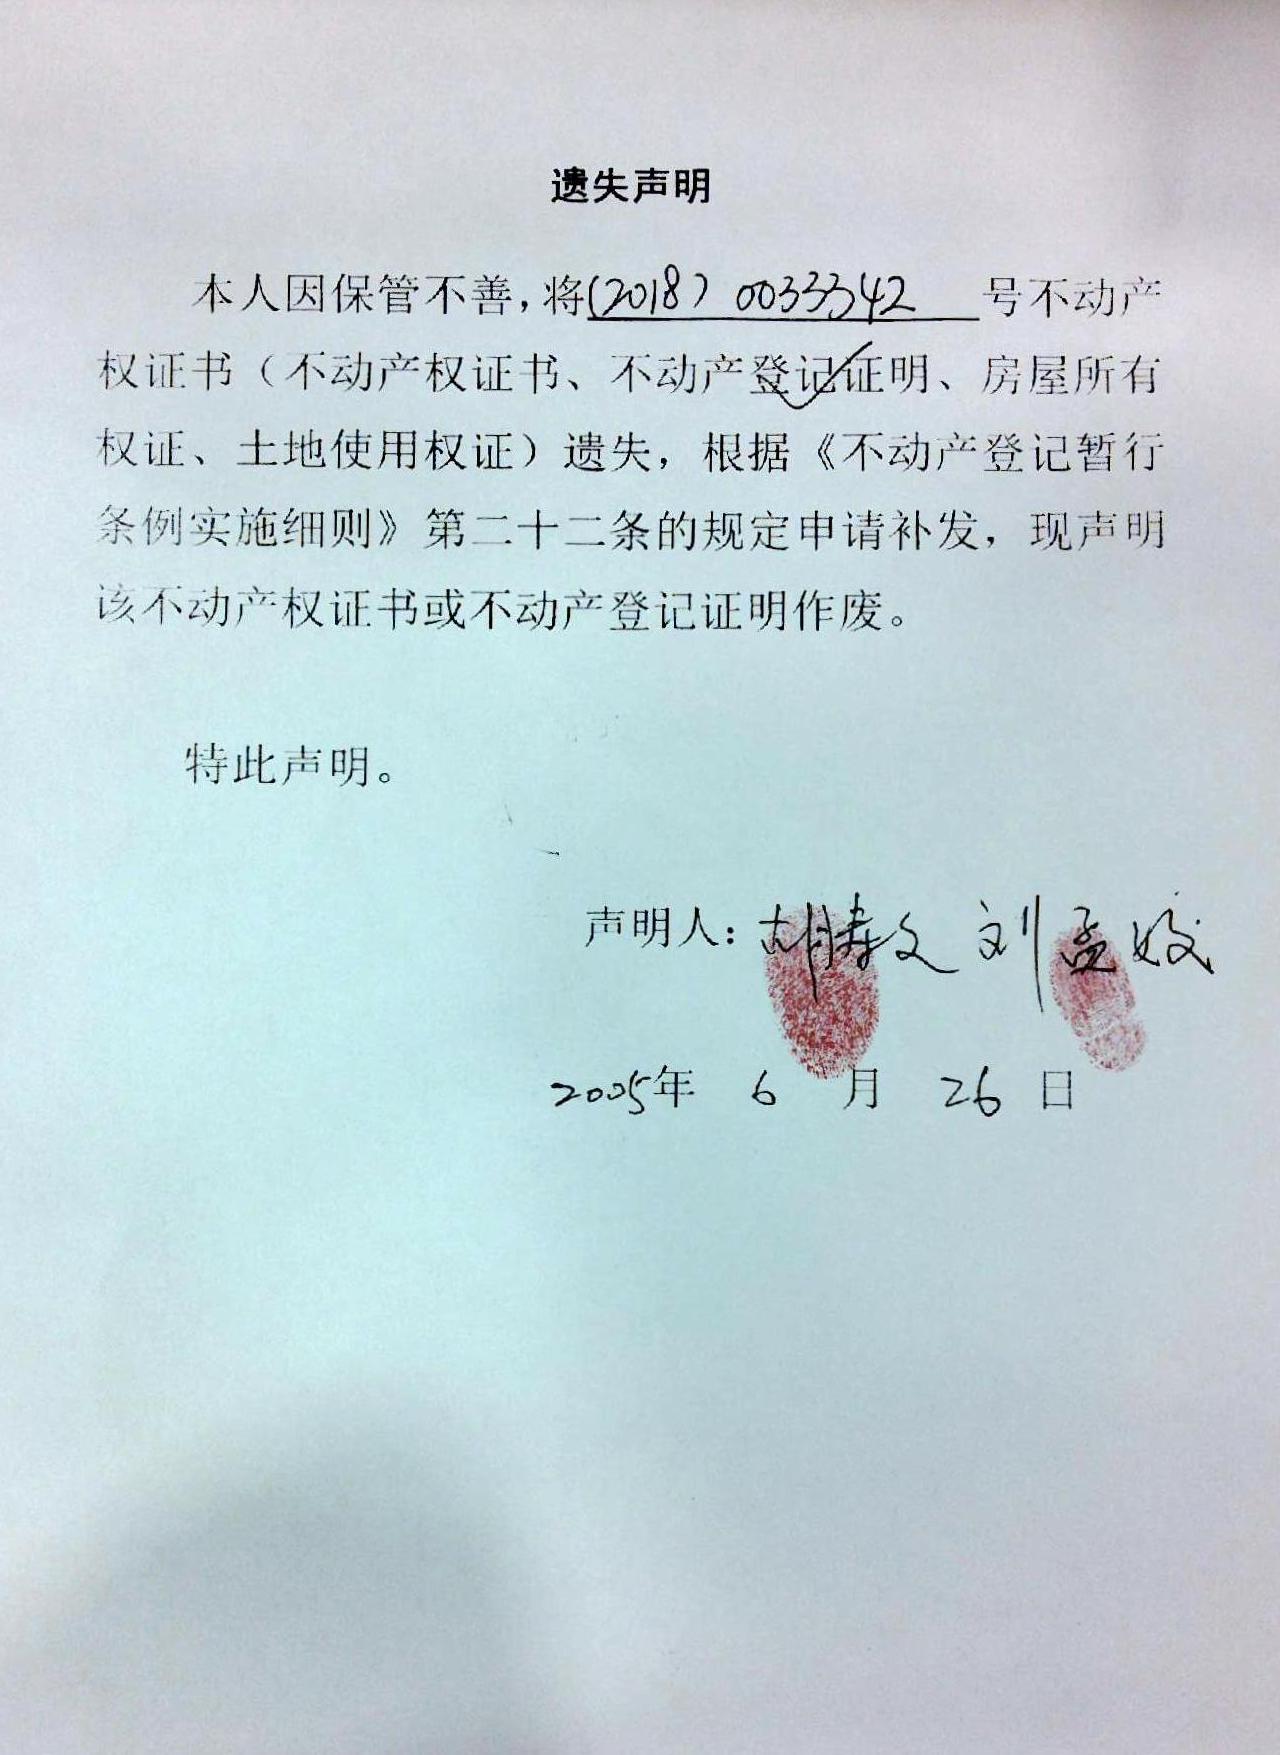 遗失声明
本人因保管不善，将(2018) 0033342 号不动产
权证书（不动产权证书、不动产登记证明、房屋所有
权证、土地使用权证）遗失，根据《不动产登记暂行
条例实施细则》第二十二条的规定申请补发，现声明
该不动产权证书或不动产登记证明作废。
特此声明。
声明人：胡 文 刘孟姣
2005年 6 月 26 日